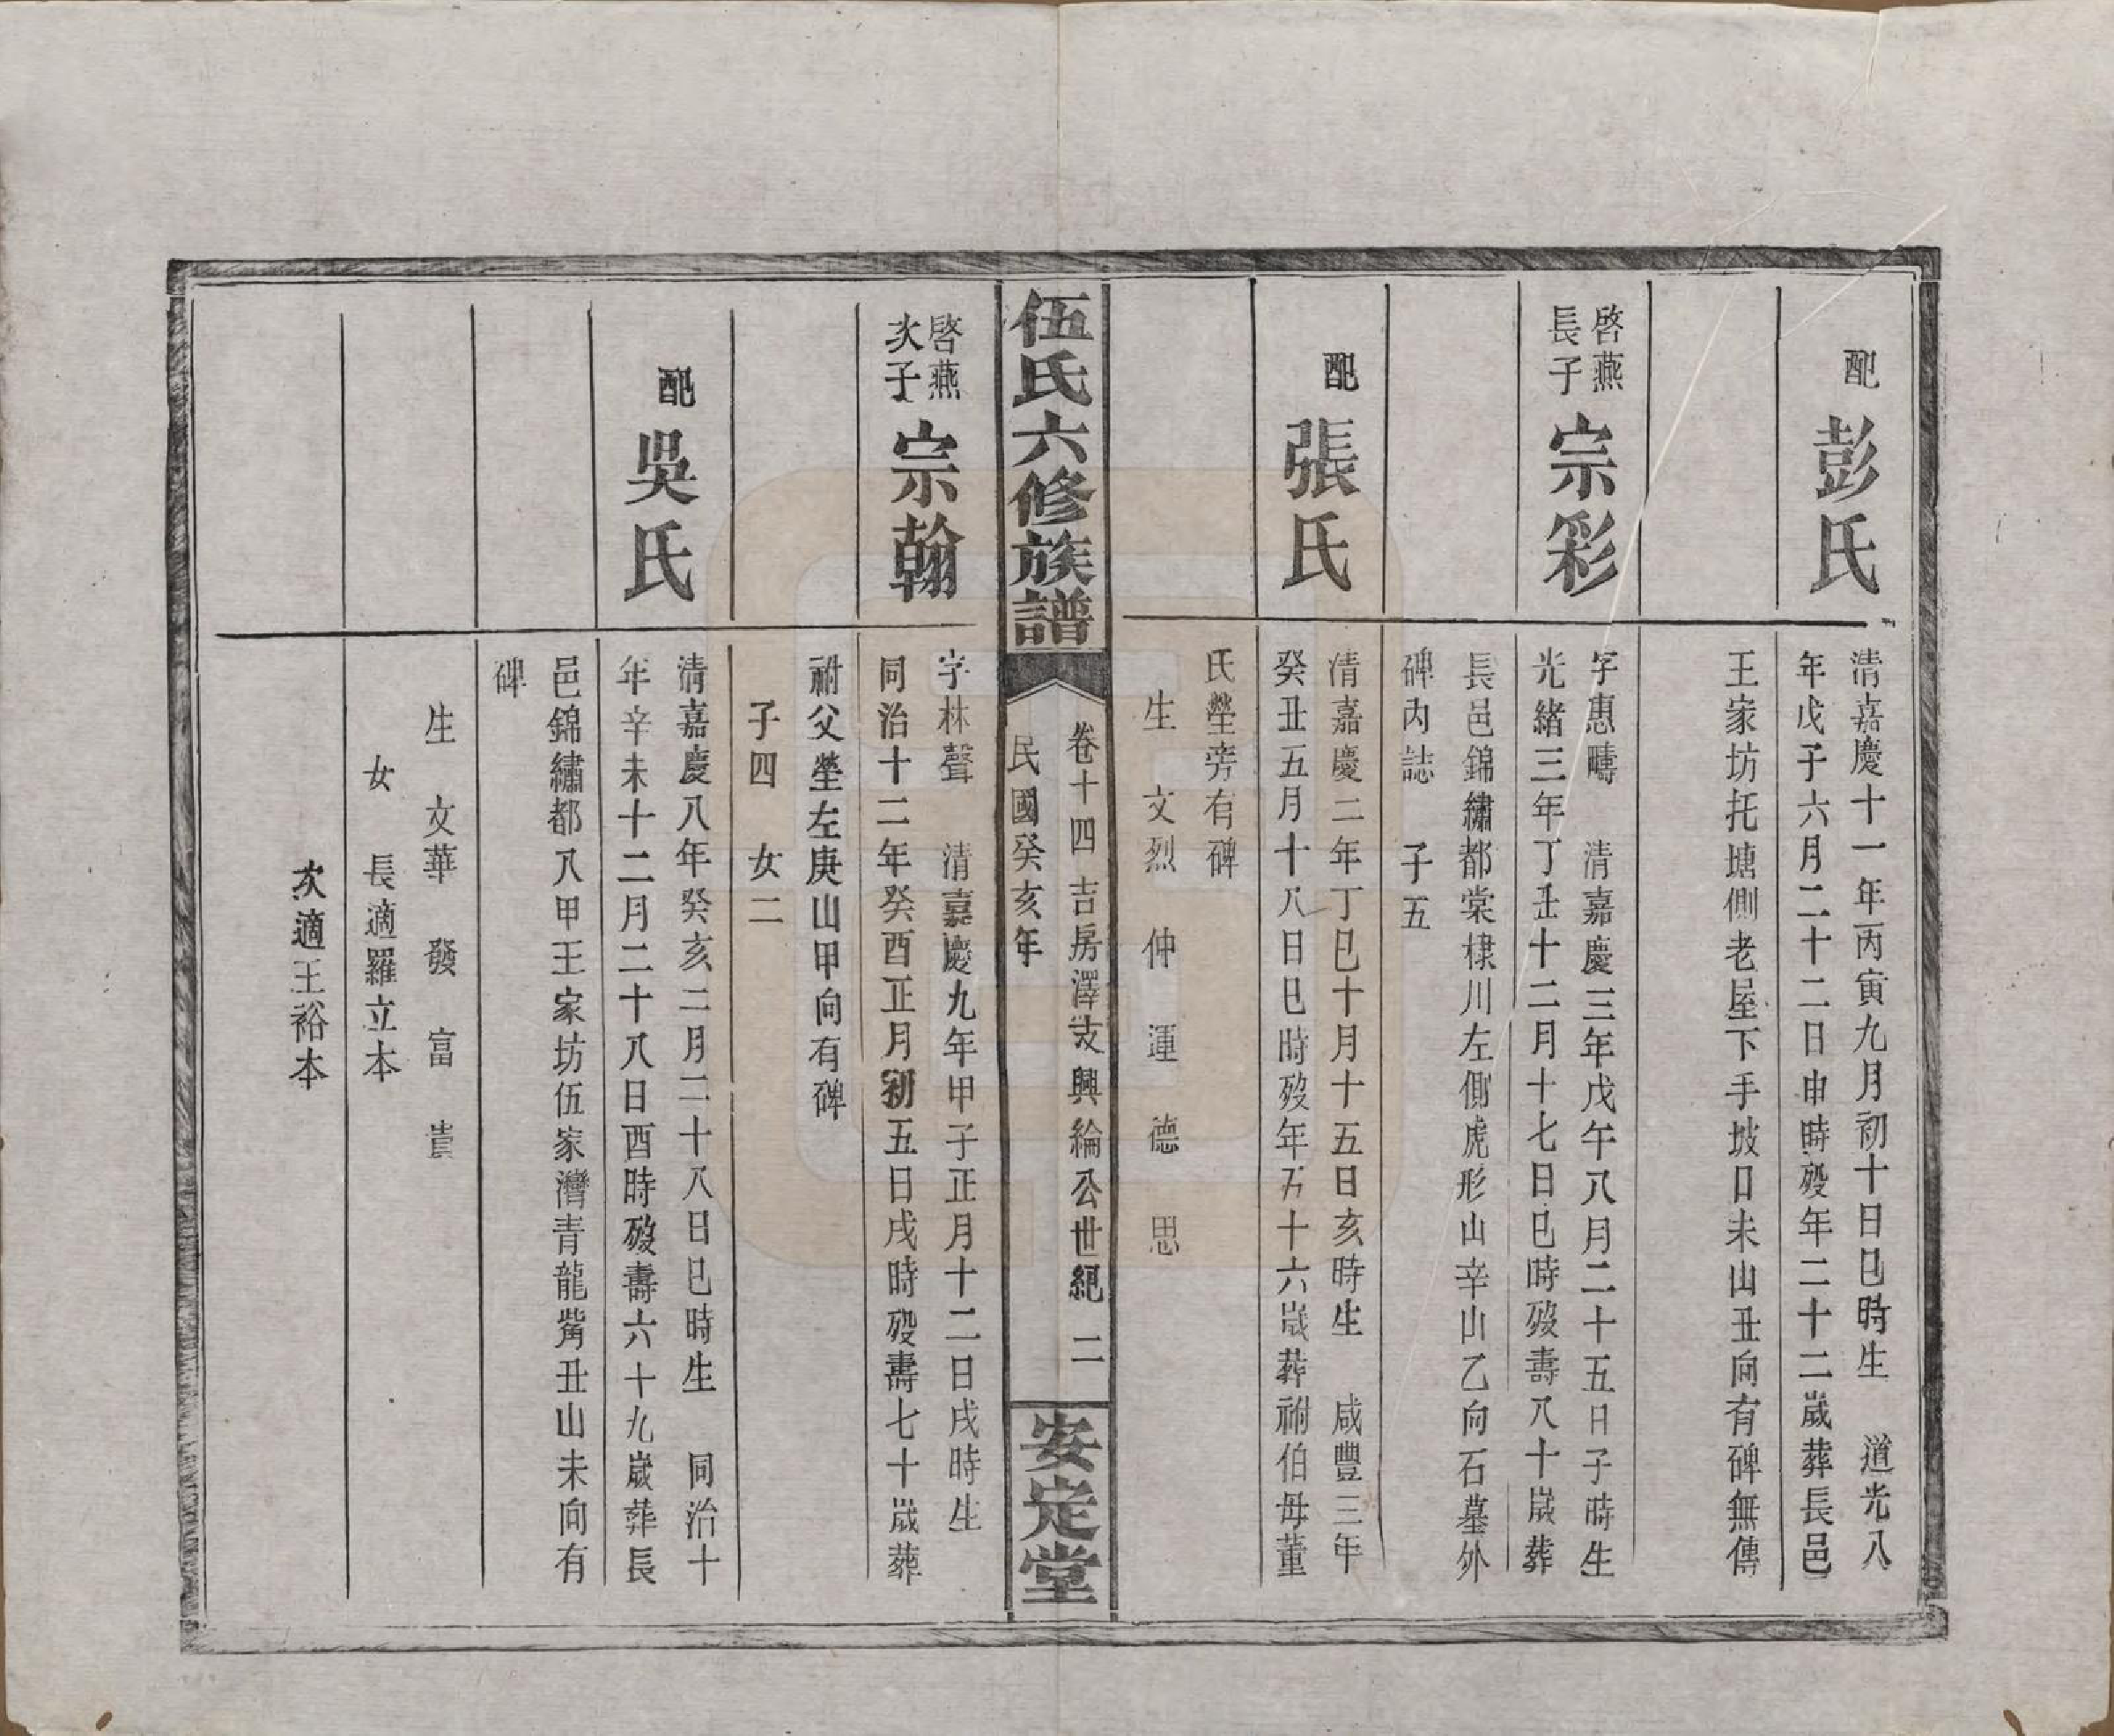 配 彭氏
清嘉慶十一年丙寅九月初十日巳時生 道光八
年戊子六月二十二日申時歿年二十二歲葬長邑
王家坊托塘側老屋下手坡口未山丑向有碑無傳
啓燕
長子
宗彩
字惠疇 清嘉慶三年戊午八月二十五日子時生
光緒三年丁丑十二月十七日巳時歿壽八十歲葬
長邑錦繡都棠棣川左側虎形山辛山乙向石墓外
碑內誌 子五
配 張氏
清嘉慶二年丁巳十月十五日亥時生 咸豐三年
癸丑五月十八日巳時歿年五十六歲葬祔伯母董
氏塋旁有碑
生 文烈 仲 運 德 思
伍氏六修族譜
卷十四 吉房澤支興綸公世紀 二
民國癸亥年
安定堂
啓燕
次子
宗翰
字林聲 清嘉慶九年甲子正月十二日戌時生
同治十二年癸酉正月初五日戌時歿壽七十歲葬
祔父塋左庚山甲向有碑
子四 女二
配 吳氏
清嘉慶八年癸亥二月二十八日巳時生 同治十
年辛未十二月二十八日酉時歿壽六十九歲葬長
邑錦繡都八甲王家坊伍家灣青龍嘴丑山未向有
碑
生 文華 發 富 貴
女 長適羅立本
次適王裕本